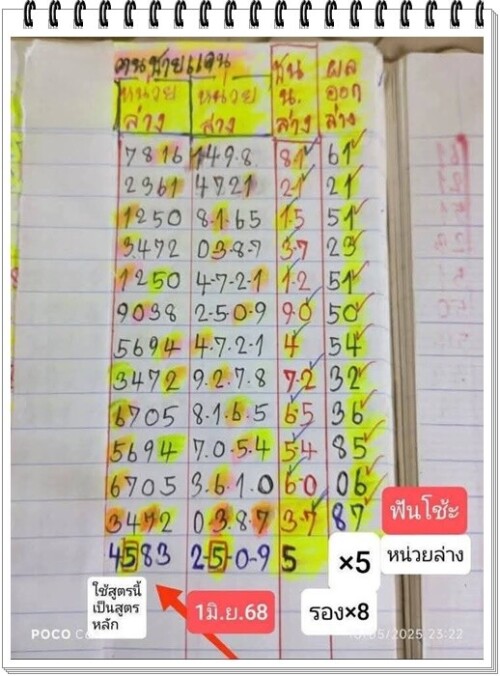 คนชายแดน
หน่วย ล่าง หน่วย ล่าง ชน น. ล่าง ผล ออก ล่าง
7816 149.8 81 61
2361 4721 21 21
1250 8.1.65 1.5 51
3472 03.8.7 3.7 23
1250 4-7-2-1 1.2 51
9038 2-5.0.9 90 50
5694 4.7.2.1 4 54
3472 9.2.7.8 7.2 32
6705 8.1.6.5 65 36
5694 7.0.5.4 5.4 85
6705 3.6.1.0 6.0 06
3472 0.3.8.7 3.7 87
ฟันโช๊ะ
4583 2-5-0-9 5 ×5 หน่วยล่าง
ใช้สูตรนี้
เป็นสูตร
หลัก
1มิ.ย.68
รอง×8